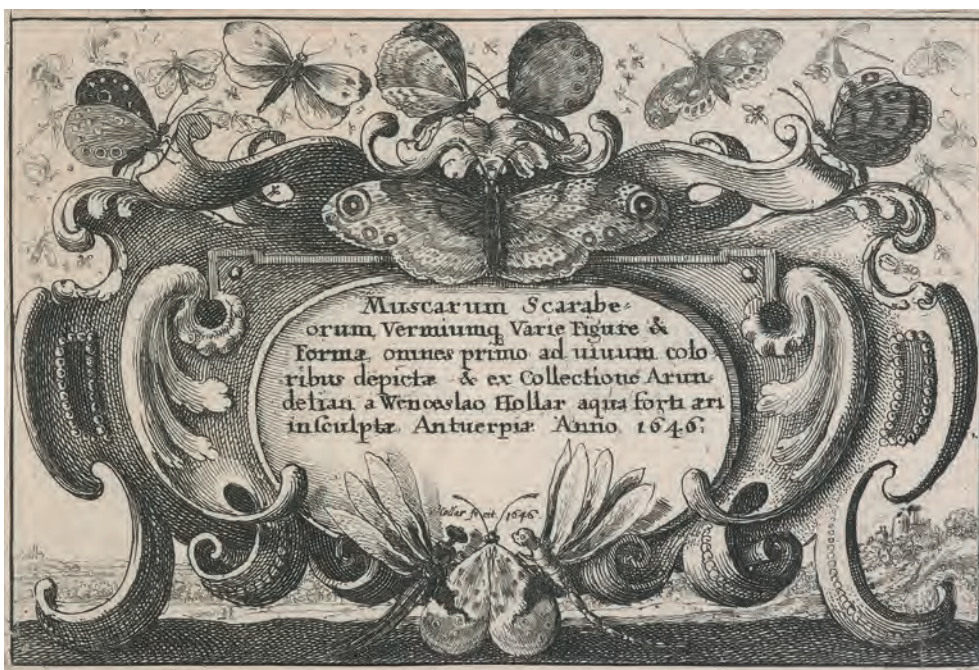 Muscarum Scarabe-
orum, Vermiumq Varie Figure &
Formæ, omnes primo ad uiuum colo
ribus depictæ & ex Collectione Arun-
delian a Wenceslao Hollar aqua forti æri
insculptæ Antuerpiæ Anno 1646.
Hollar fecit 1646